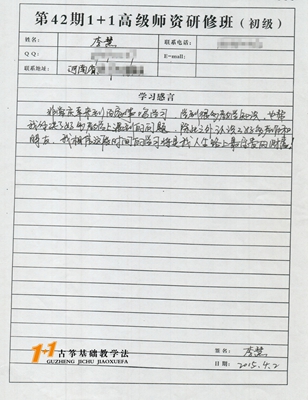 第42期1+1高级师资研修班（初级）
姓名： 李慧 联系电话：
QQ： E-mail:
联系地址： 河南省
学习感言
非常庆幸来到 学习
我解决了好多教学上遇到的问题，除此之外认识了好多老师和
朋友，我相信这段时间的学习将是我人生路上最
1+1古筝基础教学法
GUZHENG JICHU JIAOXUEFA
签名： 李慧
日期： 2015.4.2